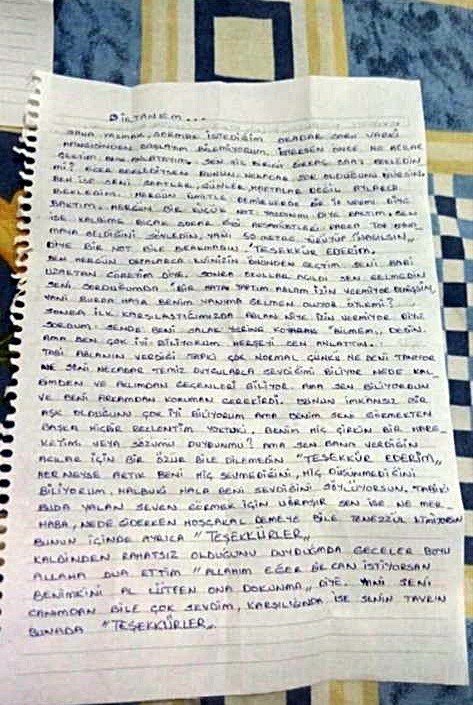 BİLTANEM...
SANA YAZMAK, SORMAK İSTEDİĞİM OKADAR SORU VARKİ
HANGİSİNDEN BAŞLAYIM BİLEMİYORUM. İSTERSEN ÖNCE NE ACILAR
ÇEKTİM ONU ANLATAYIM. SEN HİÇ BİRİNİ SAAT BEKLEDİN
Mİ? EĞER BEKLEDİYSEN BUNUN NEKADAR ZOR OLDUĞUNU BİLİRSİN.
BEN SENİ SAATLER, GÜNLER, HAFTALAR DEĞİL AYLARCA
BEKLEDİM. HERGÜN ÜMİTLE BİR İZ VARMI DİYE
BAKTIM. HERGÜN BİR KÜÇÜK NOT YAZDINMI DİYE BAKTIM. SEN
İSE KALBİME BIÇAK SOKAR GİBİ PARKA TOP OYNA
MAYA GELDİĞİNİ SÖYLEDİN. YANİ 50 METRE.
DİYE BİR NOT BİLE BIRAKMADIN "TEŞEKKÜR EDERİM„
BEN HERGÜN DEFALARCA EVİNİZİN ÖNÜNDEN GEÇTİM SENİ BARİ
UZAKTAN GÖREYİM DİYE. SONRA OKULLAR AÇILDI SEN GELMEDİN
SENİ SORDUĞUMDA "BİR HATA YAPTIM ABLAM İZİN VERMİYOR DEMİŞSİN„
YANİ BURDA HATA BENİM YANIMA GELMEN OLUYOR ÖYLEMİ?
SONRA İLK KARŞILAŞTIĞIMIZDA ABLAN NİYE İZİN VERMİYOR DİYE
SORDUM. SENDE BENİ SALAK YERİNE KOYARAK "BİLMEM„ DEDİN.
AMA BEN ÇOK İYİ BİLİYORUM HERŞEYİ SEN ANLATTIN.
TABİ ABLANIN VERDİĞİ TAPKİ ÇOK NORMAL ÇÜNKÜ NE BENİ TANIYOR
NE SENİ NEKADAR TEMİZ DUYGULARLA SEVDİĞİMİ BİLİYOR NEDE KAL-
BİMDEN VE AKLIMDAN GEÇENLERİ BİLİYOR. AMA SEN BİLİYORDUN
VE BENİ ARKAMDAN KORUMAN GEREKİRDİ. BUNUN İMKANSIZ BİR
AŞK OLDUĞUNU ÇOK İYİ BİLİYORUM AMA BENİM SENİ GÖRMEKTEN
BAŞKA HİÇBİR BEKLENTİM YOKTUKİ. BENİM HİÇ ÇİRKİN BİR HARE-
KETİMİ VEYA SÖZÜMÜ DUYDUNMU? AMA SEN BANA VERDİĞİN
ACILAR İÇİN BİR ÖZÜR BİLE DİLEMEDİN "TEŞEKKÜR EDERİM„
HER NEYSE ARTIK BENİ HİÇ SEVMEDİĞİNİ, HİÇ DÜŞÜNMEDİĞİNİ
BİLİYORUM, HALBUKİ HALA BENİ SEVDİĞİNİ SÖYLÜYORSUN. TABİKİ
BUDA YALAN SEVEN GÖRMEK İÇİN UĞRAŞIR SEN İSE NE MER
HABA, NEDE GİDERKEN HOŞÇAKAL DEMEYE BİLE TENEZZÜL ETMİYORSUN
BUNUN İÇİNDE AYRICA "TEŞEKKÜRLER„
KALBİNDEN RAHATSIZ OLDUĞUNU DUYDUĞUMDA GECELER BOYU
ALLAHA DUA ETTİM "ALLAHIM EĞER BİR CAN İSTİYORSAN
BENİMKİNİ AL LÜTFEN ONA DOKUNMA„ DİYE. YANİ SENİ
CANIMDAN BİLE ÇOK SEVDİM, KARŞILIĞINDA İSE SENİN TAVRIN
BUNADA "TEŞEKKÜRLER„